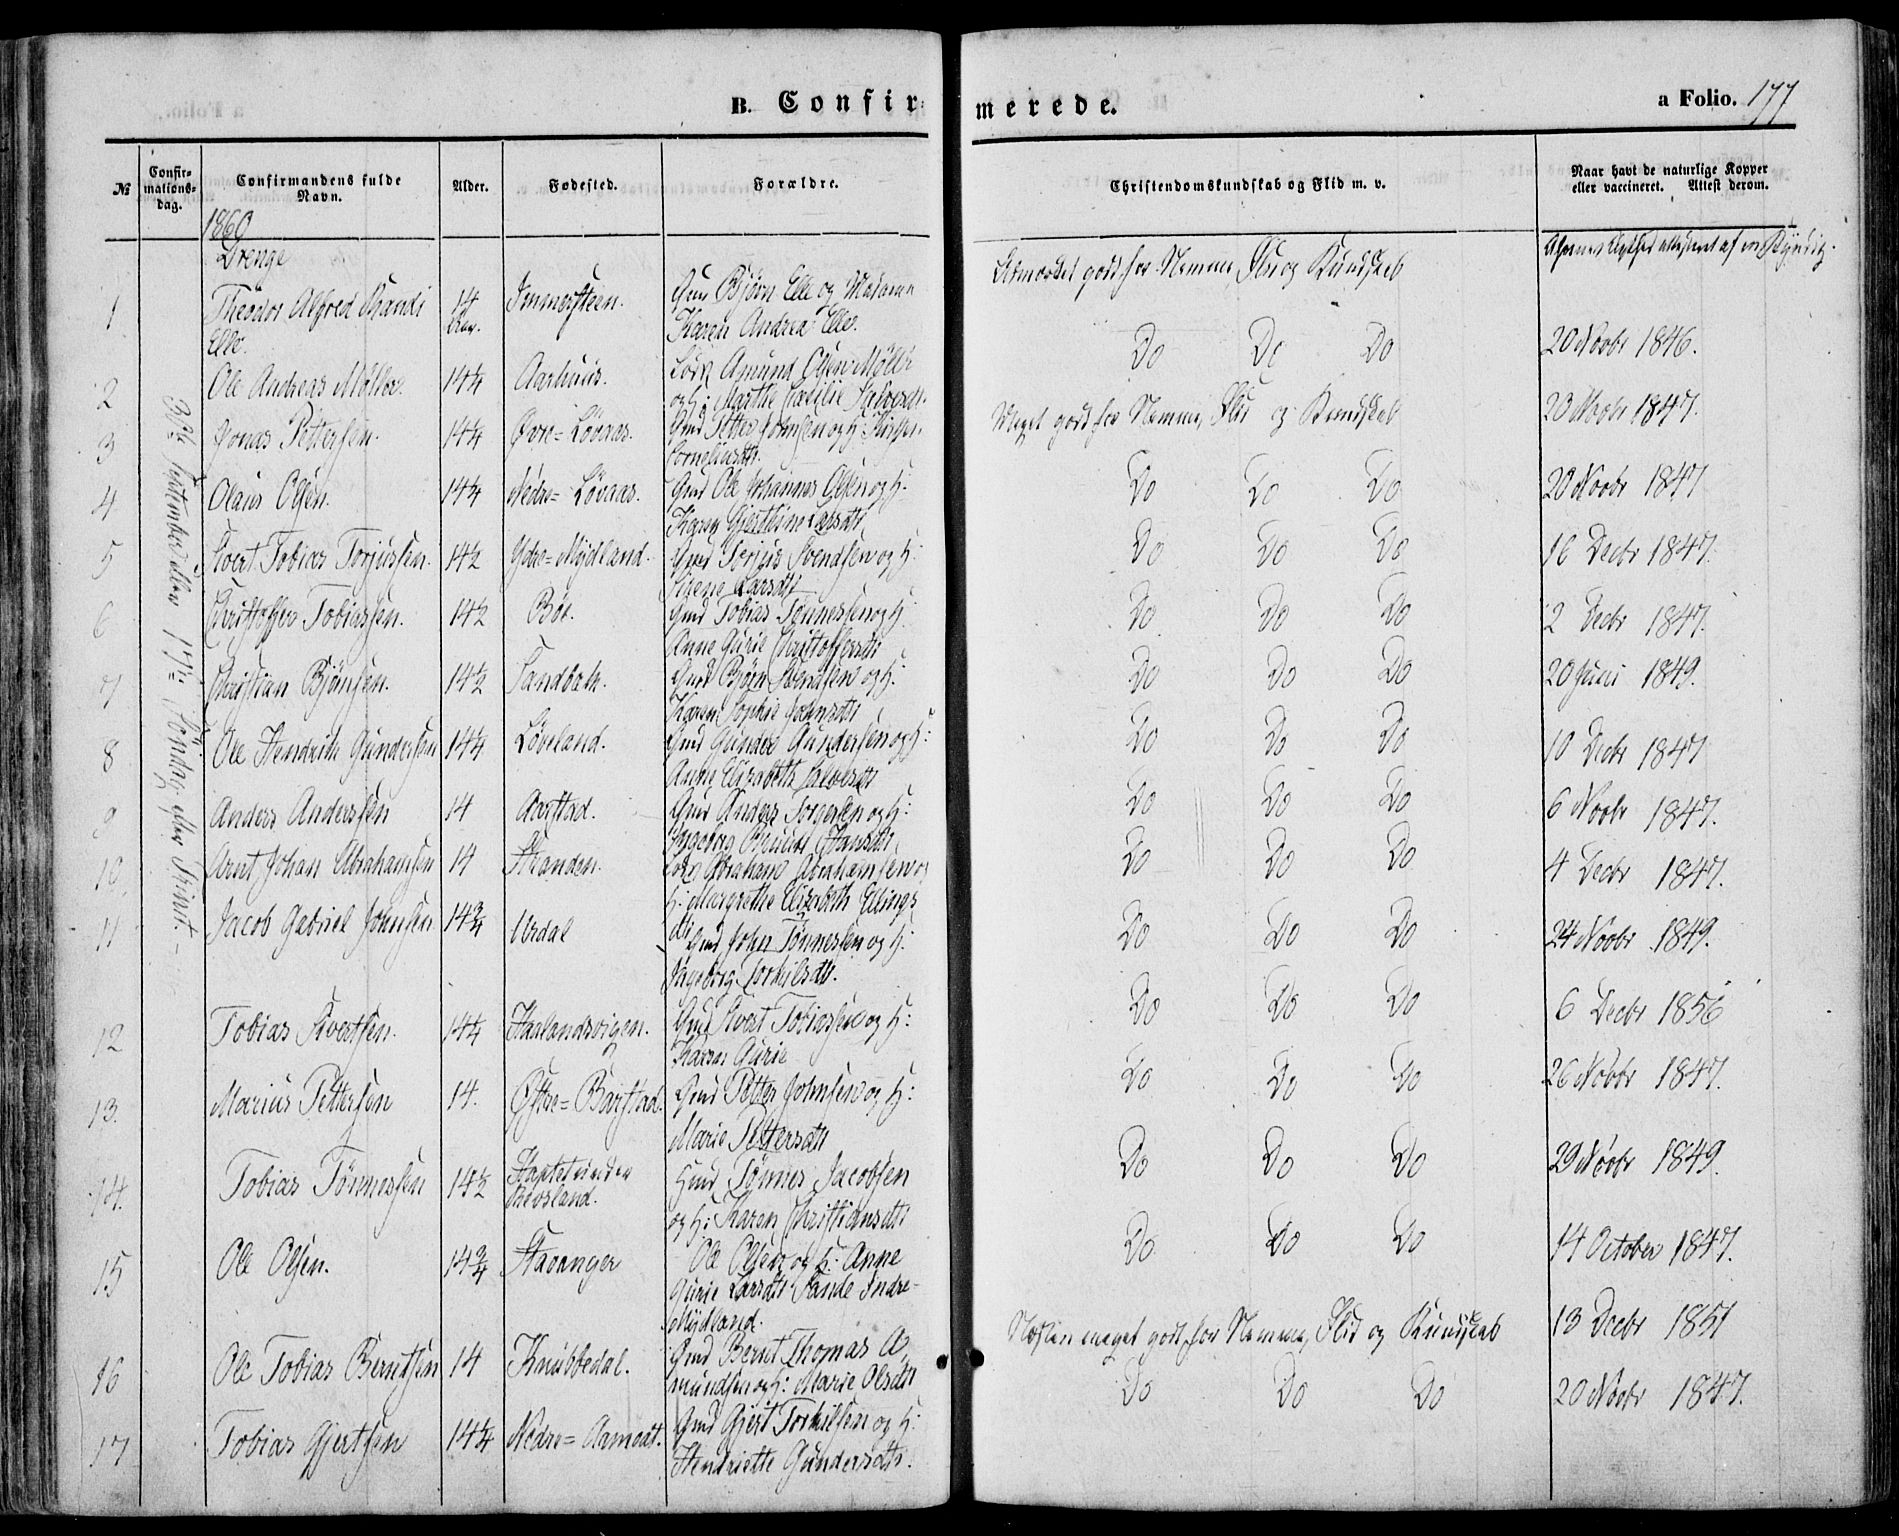 B. Confirmerede.
a Folio. 177
№
Confirmationsdag.
Confirmandens fulde Navn.
Alder.
Fødested.
Forældre.
Christendomskundskab og Flid m. v.
Naar havt de naturlige Kopper eller vaccineret. Attest derom.
1860
Drenge
30te September eller 17de Søndag efter Trinit.
1 Theodor Alfred Elle. 14 Immersteen. Gmd Bjørn Elle og Madame Karen Andrea Elle. Udmærket godt for Nemme Flid og Kundskab
2 Ole Andreas Møller. 14¼ Aarhuus. Amund Olsen Møller og H: Marthe Do Do Do 20 Novbr 1846.
3 Jonas Pettersen. 14¼ Øvre=Løvaas. Gmd Petter Johnsen og H: Corneliusdtr. Meget godt for Nemme, Flid og Kundskab 23 Novbr 1847.
4 Olaus Olsen. 14¼ Nedre=Løvaas. Gmd Ole Johannes Olsen og H: Karen Gjertine Larsdtr Do Do Do 20 Novbr 1847
5 Sivert Tobias Torjussen. 14½ Ydre=Mydland. Gmd Torjus Svendsen og H: Larsdtr Do Do Do 16 Decbr 1847.
6 Christoffer Tobiassen. 14½ Bøe. Gmd Tobias Tønnessen og H: Anne Gurie Christoffersdtr Do Do Do 2 Decbr 1847.
7 Christian Bjørnsen. 14½ Sandbæk. Gmd Bjørn Svendsen og H: Karen Sophie Johnsdtr Do Do Do 20 Juni 1849.
8 Ole Hendrik Gundersen 14¼ Løveland. Gmd Gunder Gundersen og H: Anne Elisabeth Sivertsdtr Do Do Do 10 Decbr 1847
9 Anders Anderssen 14 Aarstad. Gmd Anders Torgersen og H: Ingeborg Hansdtr Do Do Do 6 Novbr 1847.
10 Arnt Johan Abrahamsen 14 Stranden. Abraham Abrahamsen og H: Margrethe Elizabeth Ellingsdtr Do Do Do 4 Decbr 1847.
11 Jacob Gabriel Johnsen 14¾ Urdal Gmd John Tønnessen og H: Ingeborg Torkilsdtr. Do Do Do 24 Novbr 1849.
12 Tobias Sivertsen. 14¼ Haalandsvigen. Gmd Sivert Tobiassen og H: Karen Gurie Do Do Do 6 Decbr 1856
13. Marius Pettersen 14. Østre=Barstad. Gmd Petter Johnsen og H: Marie Pettersdtr Do Do Do 26 Novbr 1847.
14. Tobias Tønnessen 14½ Gmd Tønnes Jacobsen og H: Karen Christiansdtr Do Do Do 29 Novbr 1849.
15 Ole Olsen. 14¾ Stavanger Ole Olsen og H: Anne Gurie Larsdtr Sande Indre-Mydland. Do Do Do 14 October 1847.
16 Ole Tobias Berntsen 14 Knubbedal. Gmd Bernt Thomas Amundsen og H: Marie Olsdtr Næsten meget godt for Nemme, Flid og Kundskab 13 Decbr 1851
17 Tobias Gjertsen 14¼ Nedre=Aamodt. Gmd Gjert Torkilsen og H: Hendriette Gundersdtr. Do Do Do 20 Novbr 1847.